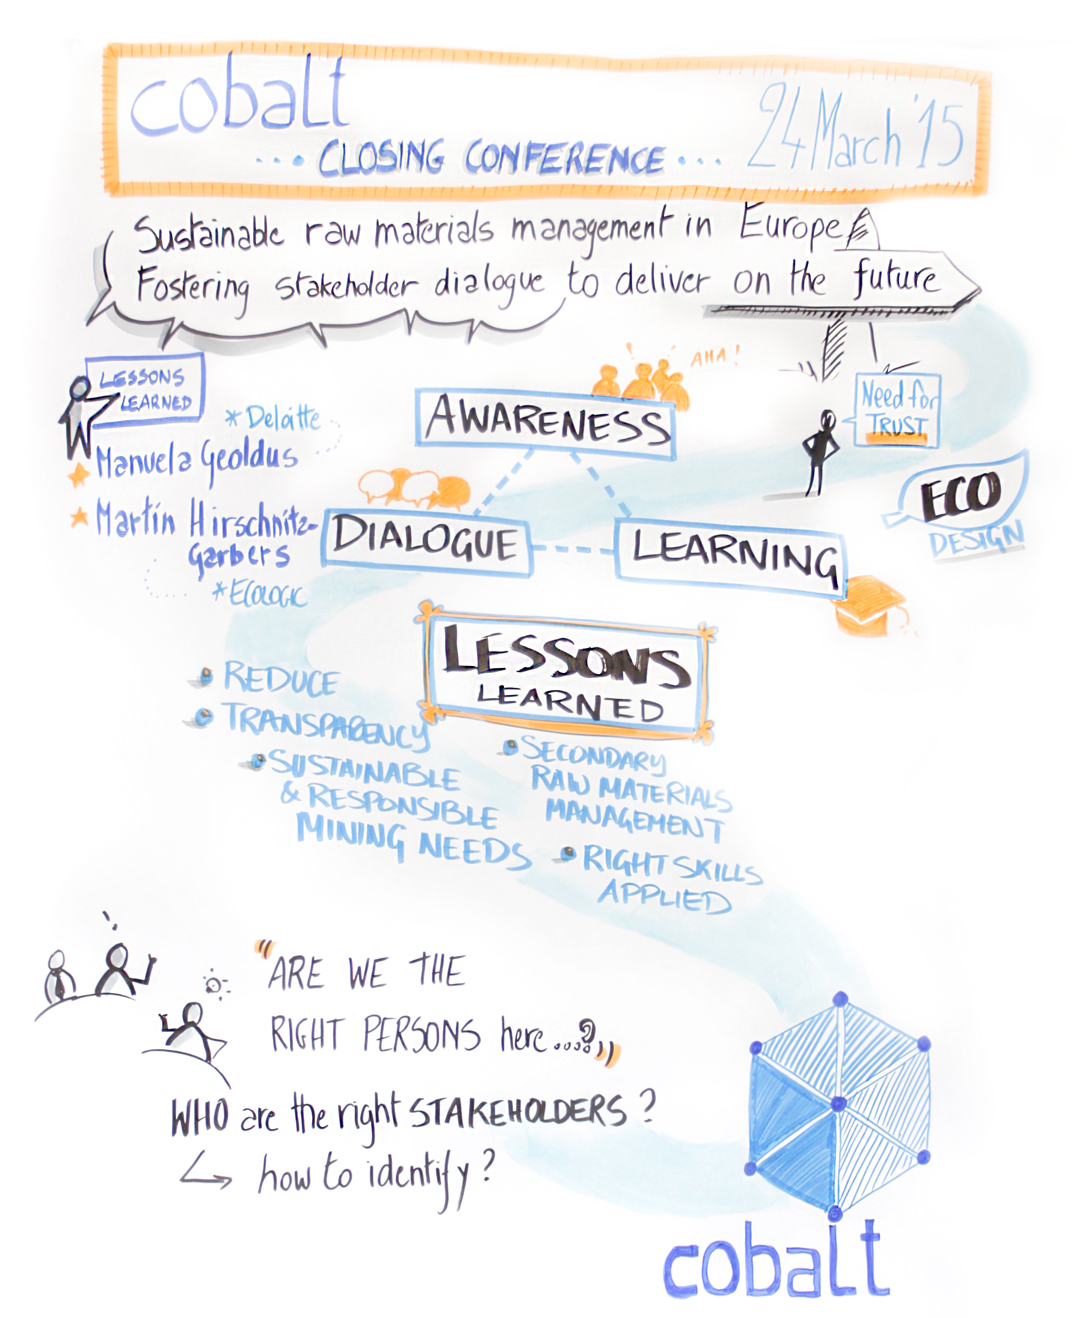 cobalt
24 March '15
... CLOSING CONFERENCE ...
Sustainable raw materials management in Europe
Fostering stakeholder dialogue to deliver on the future
LESSONS
LEARNED
* Deloitte
Manuela Geoldus
Martin Hirschnitz-
Garbers
* ECOLOGIC
AHA!
AWARENESS
DIALOGUE
LEARNING
Need for
TRUST
ECO
DESIGN
LESSONS
LEARNED
REDUCE
TRANSPARENCY
SUSTAINABLE
& RESPONSIBLE
MINING NEEDS
SECONDARY
RAW MATERIALS
MANAGEMENT
RIGHT SKILLS
APPLIED
"ARE WE THE
RIGHT PERSONS here....?"
WHO are the right STAKEHOLDERS?
how to identify?
cobalt